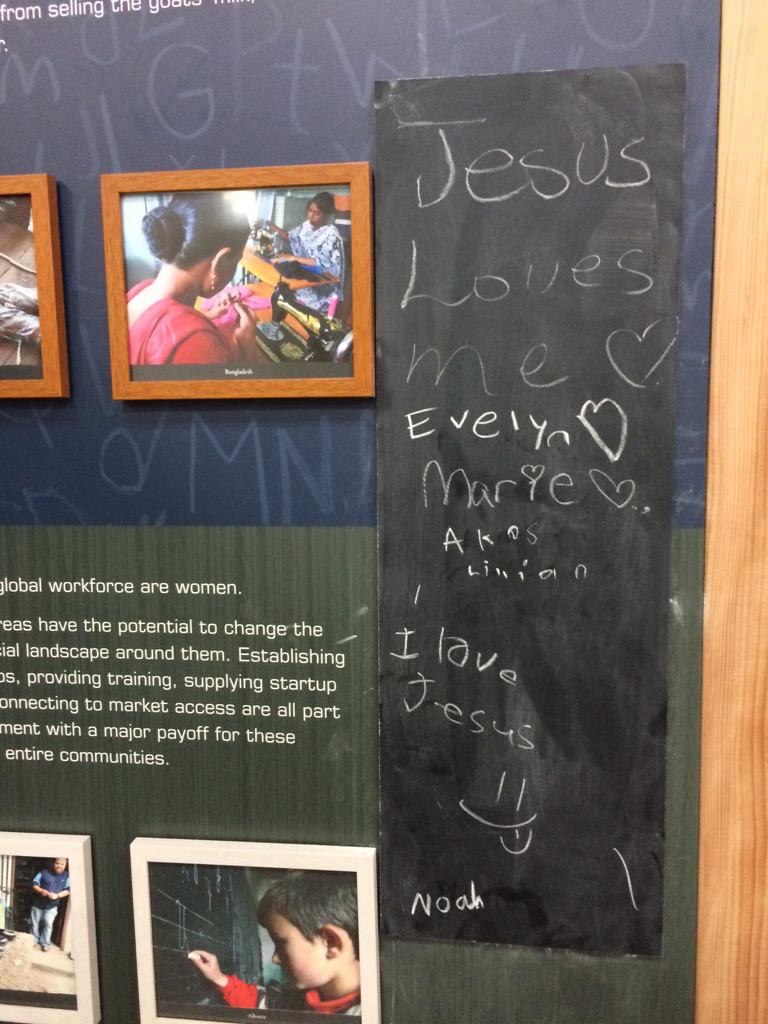 from selling the goats' milk,
r.
Bangladesh
global workforce are women.
reas have the potential to change the
ial landscape around them. Establishing
os, providing training, supplying startup
onnecting to market access are all part
ment with a major payoff for these
entire communities.
Albania
Jesus
Loves
me
Evelyn
Marie
Akos
Linian
I love
Jesus
Noah